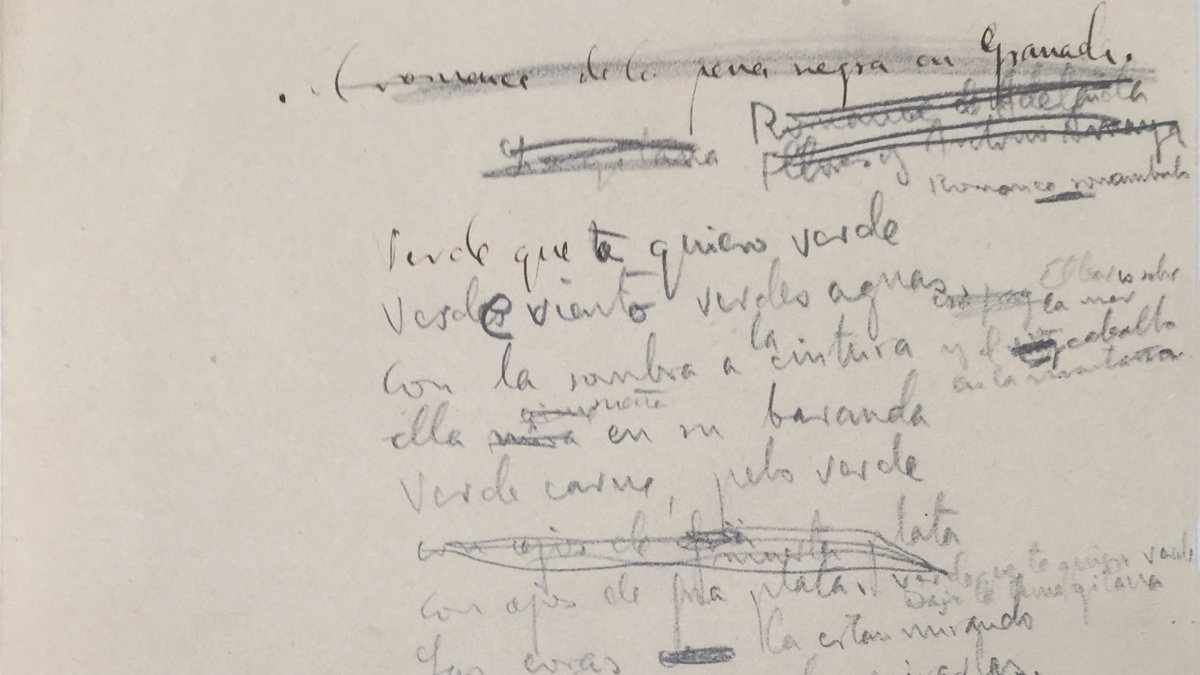 Romance de la pena negra en Granada.
Romance de Adelaida
Flores y Antonio Amaya
Romance sonambulo
Verde que te quiero verde
Verde viento verdes aguas
El barco sobre
la mar
Con la sombra a la cintura
y el caballo
en la montaña
ella sueña en su baranda
Verde carne, pelo verde
con ojos de muerta plata
con ojos de fria plata.
verde que te quiero verde
Bajo la luna gitana
Las cosas la estan mirando